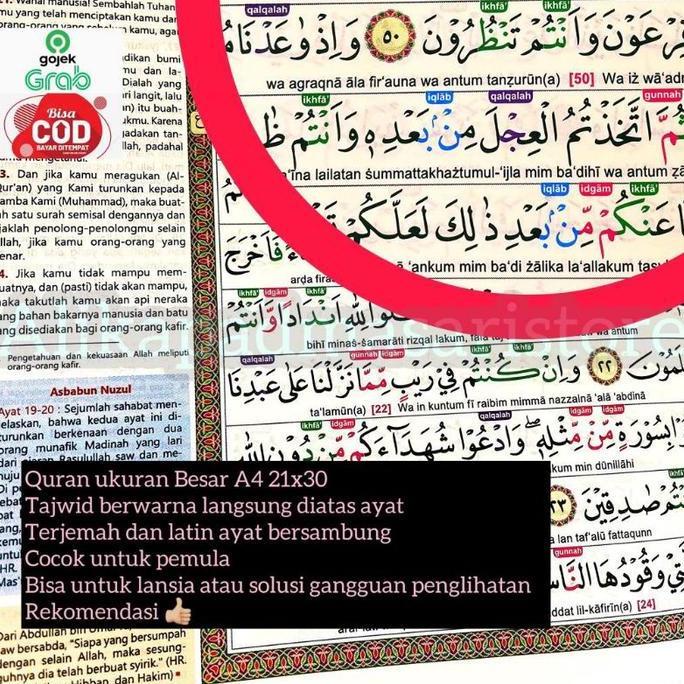 21. Wahai manusia! Sembahlah Tuhan-
mu yang telah menciptakan kamu dan
orang-orang yang sebelum kamu, agar
gojek
Grab
Bisa
COD
BAYAR DITEMPAT
dikan bumi
Dialah yang
langit, lalu
itu) buah-
Karena
adakan tan-
llah, padahal
mengetahui.
3. Dan jika kamu meragukan (Al-
Qur'an) yang Kami turunkan kepada
amba Kami (Muhammad), maka buat-
h satu surah semisal dengannya dan
jaklah penolong-penolongmu selain
llah, jika kamu orang-orang yang
enar.
4. Jika kamu tidak mampu mem-
uatnya, dan (pasti) tidak akan mampu,
aka takutlah kamu akan api neraka
ang bahan bakarnya manusia dan batu
ng disediakan bagi orang-orang kafir.
Pengetahuan dan kekuasaan Allah meliputi
orang-orang kafir.
Asbabun Nuzul
Ayat 19-20 : Sejumlah sahabat men-
elaskan, bahwa kedua ayat ini di-
turunkan berkenaan dengan dua
orang munafik Madinah yang lari
dari Rasulullah saw dan me-
Dari Abdullah bin
saw bersabda, "Siapa yang bersumpah
dengan selain Allah, maka sesung-
guhnya dia telah berbuat syirik." (HR.
Hibban, dan Hakim)
qalqalah ikhfā' ikhfā'
فِرْعَوْنَ وَاَنْتُمْ تَنْظُرُوْنَ ٥٠ وَاِذْ وٰعَدْنَا
wa agraqnā āla fir'auna wa antum tanẓurūn(a) [50] Wa iż wā'ad
ikhfā' iqlāb qalqalah gunnah
ثُمَّ اتَّخَذْتُمُ الْعِجْلَ مِنْۢ بَعْدِهٖ وَاَنْتُمْ ظ
'īna lailatan ṡummattakhażtumul-'ijla mim ba'dihī wa antum ẓā
iqlāb idgām ikhfā'
عَنْكُمْ مِّنْۢ بَعْدِ ذٰلِكَ لَعَلَّكُمْ
'ankum mim ba'di żālika la'allakum
فَاَخْرَجَ
ikhfā' idgām ikhfā'
لِلّٰهِ اَنْدَادًا وَّاَنْتُمْ
bihī minaṡ-ṡamarāti rizqal lakum, falā
wa antum
qalqalah gunnah idgām ikhfā' ikhfā'
٢٢ وَاِنْ كُنْتُمْ فِيْ رَيْبٍ مِّمَّا نَزَّلْنَا عَلٰى عَبْدِنَا
ta'lamūn(a) [22] Wa in kuntum fī raibim mimmā nazzalnā 'alā 'abdinā
idgām ikhfā' qalqalah idgām idgām
بِسُوْرَةٍ مِّنْ مِّثْلِهٖ وَادْعُوْا شُهَدَاۤءَكُمْ مِّنْ دُوْنِ اللّٰهِ
kum min dūnillāhi
صٰدِقِيْنَ ٢٣
lan taf'alū fattaqunn
gunnah
وَقُوْدُهَا النَّاسُ
ddat lil-kāfirīn(a) [24]
Quran ukuran Besar A4 21x30
Tajwid berwarna langsung diatas ayat
Terjemah dan latin ayat bersambung
Cocok untuk pemula
Bisa untuk lansia atau solusi gangguan penglihatan
Rekomendasi 👍🏼